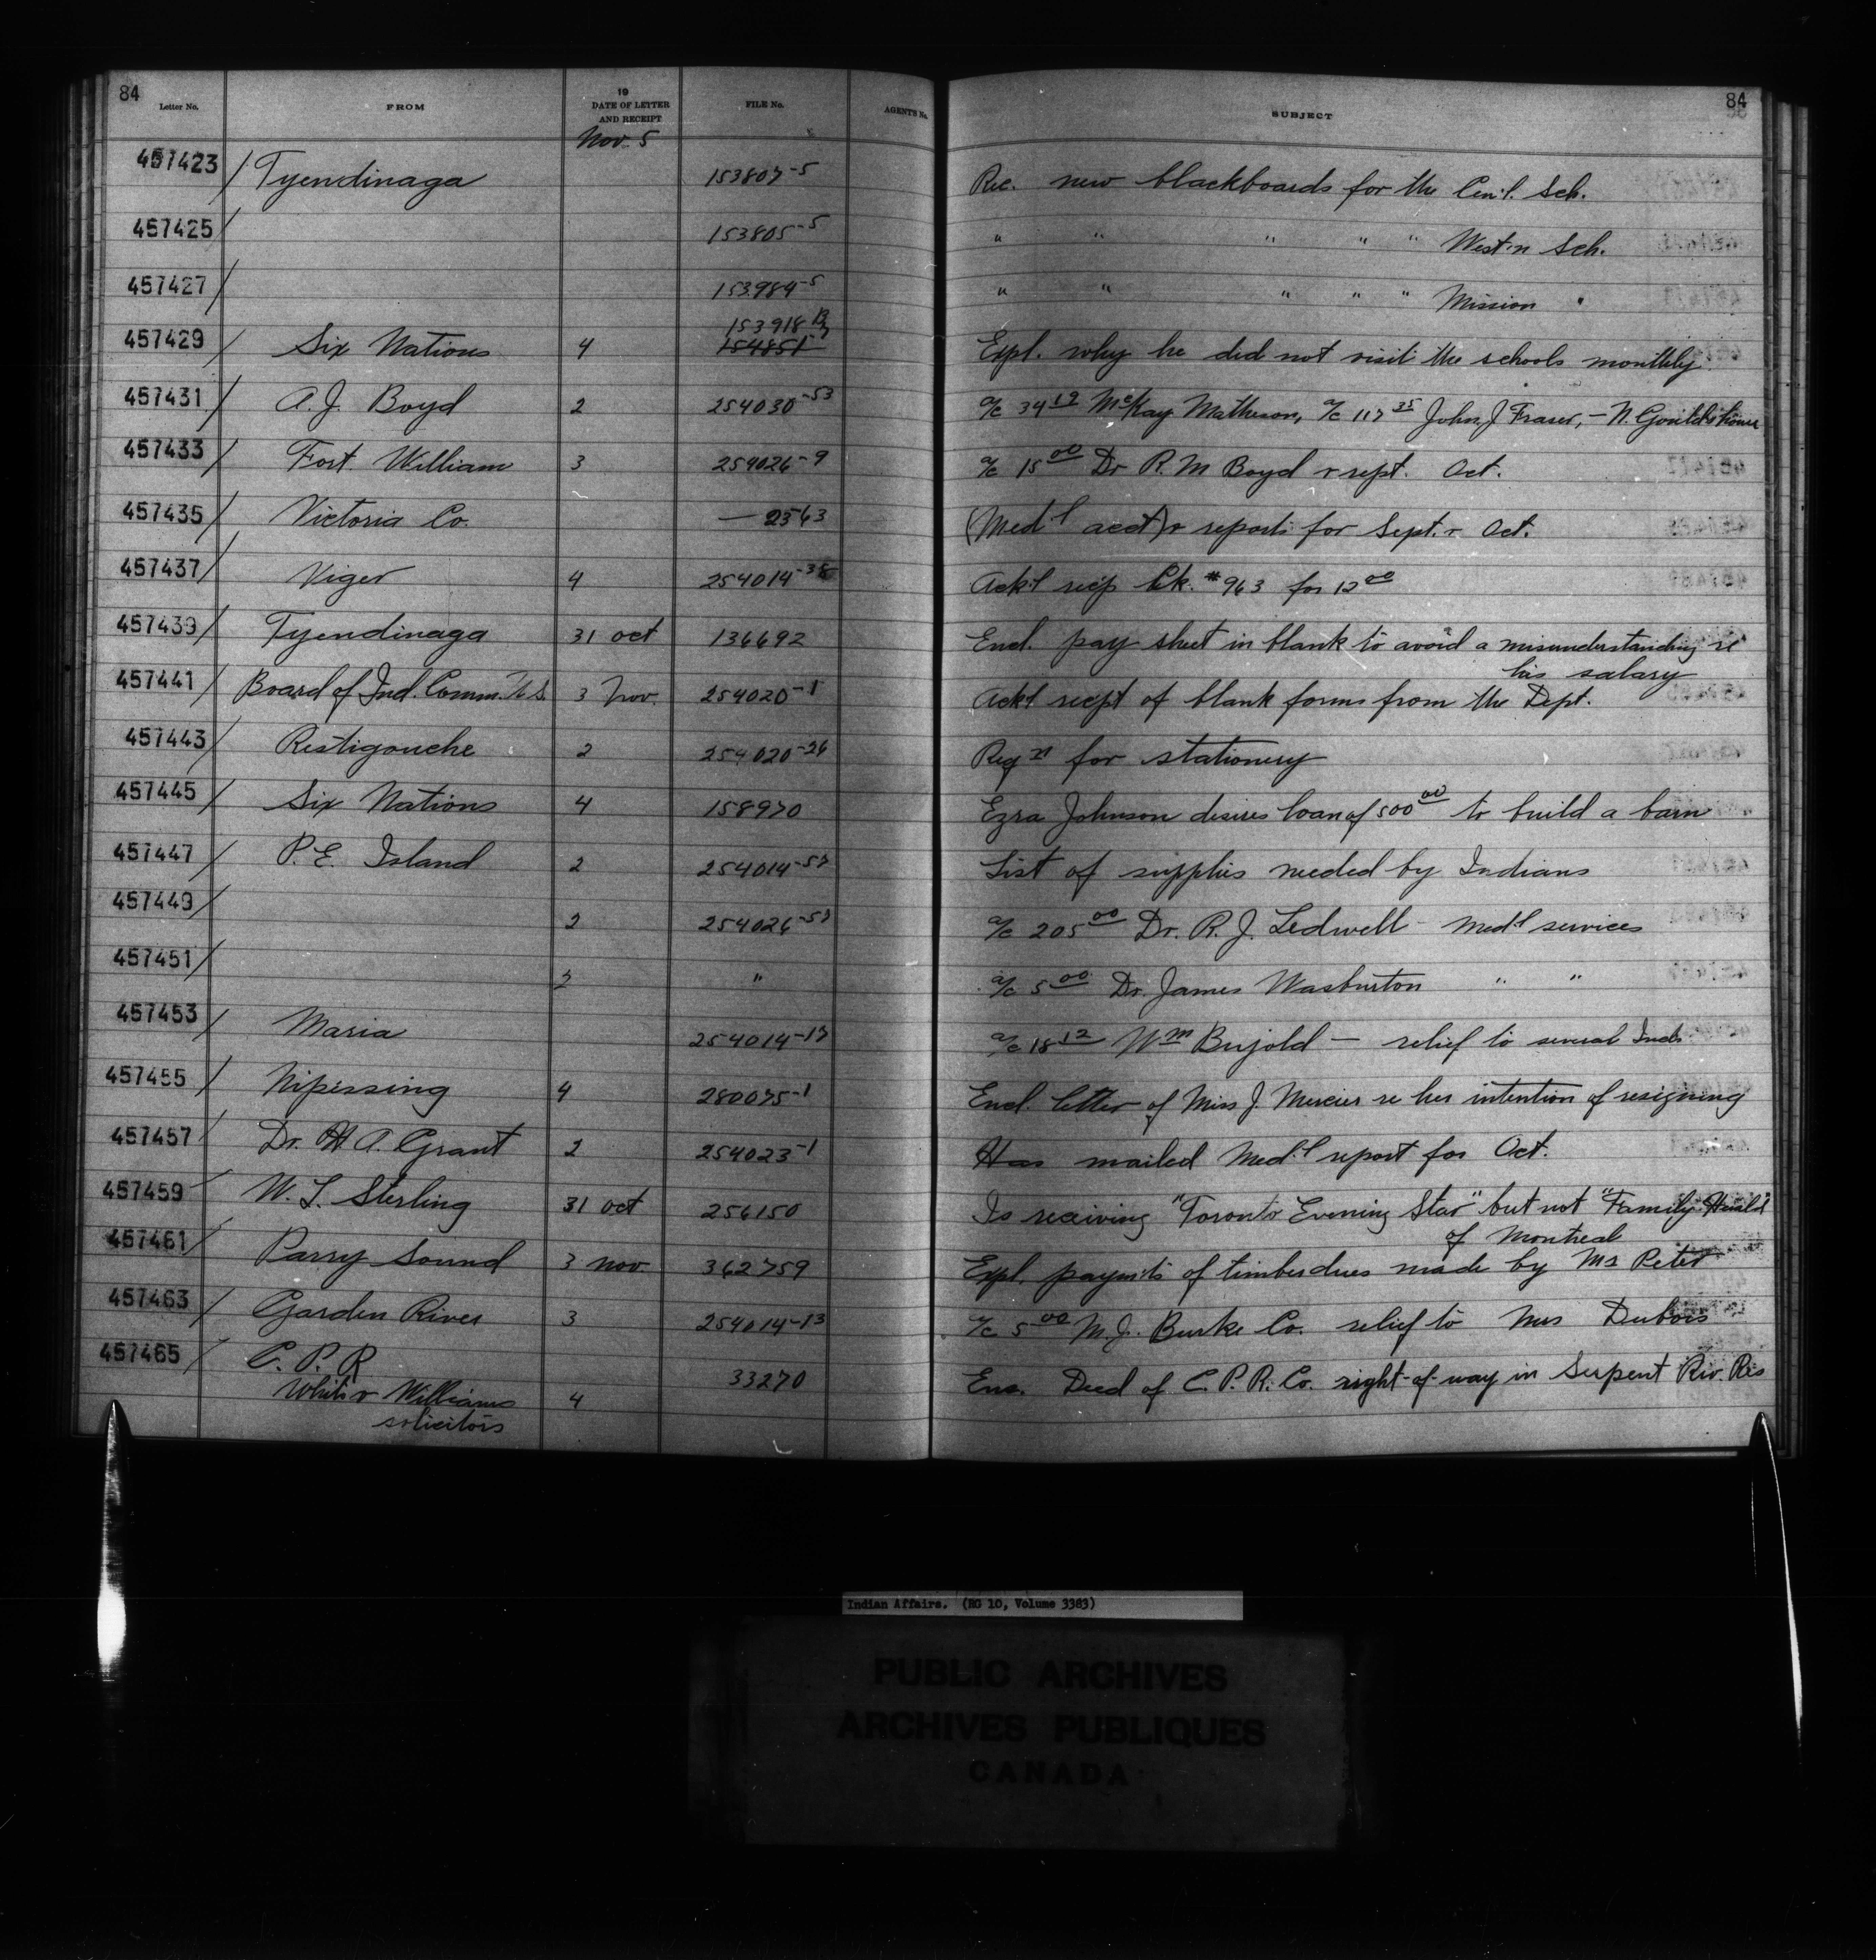 84 84
Letter No. FROM 19 DATE OF LETTER AND RECEIPT FILE No. AGENT'S No. SUBJECT
Nov. 5
457423 / Tyendinaga 153807-5 Rec. new blackboards for the Cen'l. Sch.
457425 / 153805-5 " " " " " West'n Sch.
457427 / 153984-5 " " " " " Mission "
153918
457429 / Six Nations 4 154851 Expl. why he did not visit the schools monthly
457431 / A. J. Boyd 2 254030-53 a/c 34 19 McKay Matheson, a/c 117 35 John J Fraser, — N. Gould's house
457433 / Fort William 3 254026-9 a/c 15 00 Dr R. M Boyd & rept. Oct.
457435 / Victoria Co. — 2363 (Med'l acct) & reports for Sept. & Oct.
457437 / Viger 4 254014-38 Ack'l recp Ck. #963 for 12 00
457439 / Tyendinaga 31 oct 136692 Encl. pay sheet in blank to avoid a misunderstanding re
his salary
457441 / Board of Ind. Comm. U.S. 3 Nov. 254020-1 Ack'l recpt of blank forms from the Dept.
457443 / Restigouche 2 254020-26 Reqn for stationery
457445 / Six Nations 4 158970 Ezra Johnson desires loan of 500 00 to build a barn
457447 / P. E. Island 2 254014-57 List of supplies needed by Indians
457449 / 2 254026-57 a/c 205 00 Dr. R. J. Ledwell - Med'l services
457451 / 2 " a/c 5 00 Dr. James Wasburton " "
457453 / Maria 254014-17 a/c 18 12 Wm Bujold — relief to several Inds.
457455 / Nipissing 4 280075-1 Encl. letter of Miss J. Mercier re her intention of resigning
457457 / Dr. H A. Grant 2 254023-1 Has mailed Med'l report for Oct.
457459 / W. L. Sterling 31 oct 256150 Is receiving "Toronto Evening Star" but not "Family Herald"
of Montreal
457461 / Parry Sound 3 nov 362759 Expl. paym'ts of timber dues made by Mr Peter
457463 / Garden River 3 254014-13 a/c 5 00 M. J. Burke Co. relief to Mrs Dubois
457465 / C. P. R 33270 Enc. Deed of C. P. R. Co. right-of-way in Serpent Riv. Res
White & Williams 4
solicitors
Indian Affairs. (RG 10, Volume 3383)
PUBLIC ARCHIVES
ARCHIVES PUBLIQUES
CANADA